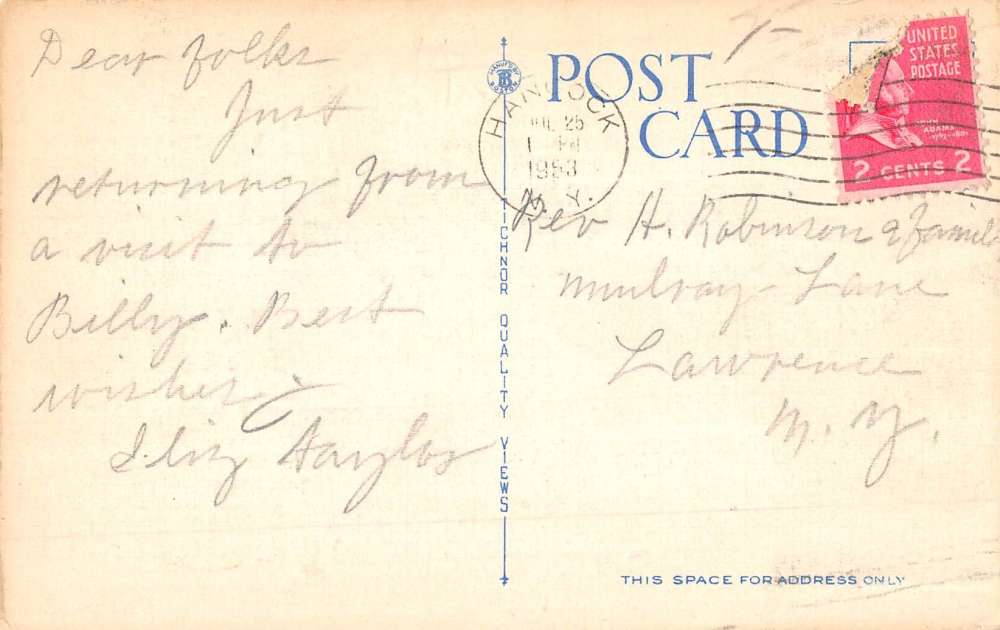 Dear folks
Just
returning from
a visit to
Billy. Best
wishes
Eliz Taylor
MANUF'D BY
BOSTON
TICHNOR QUALITY VIEWS
POST
CARD
HANCOCK
JUL 25
1 PM
1953
N. Y.
UNITED
STATES
POSTAGE
JOHN
ADAMS
2 CENTS 2
Rev H. Robinson & family
Lane
Lawrence
N. Y.
THIS SPACE FOR ADDRESS ONLY